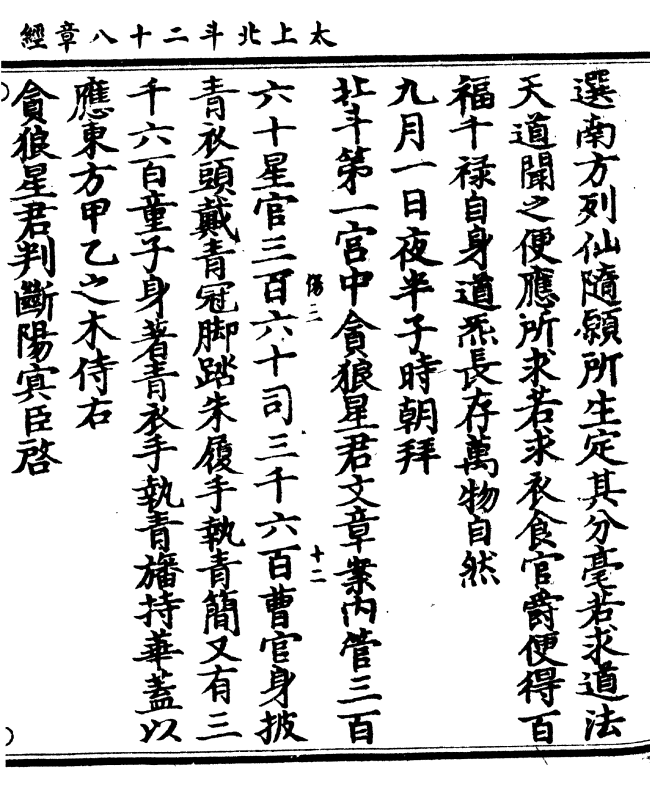 太上北斗二十八章經
選南方列仙隨願所生定其分毫若求道法
天道聞之便應所求若求衣食官爵便得百
福千祿自身道炁長存萬物自然
九月一日夜半子時朝拜
北斗第一宮中貪狼星君文章案內管三百
六十星官三百六十司三千六百曹官身披
傷二
十二
青衣頭戴青冠脚踏朱履手執青簡又有三
千六百童子身著青衣手執青旛持華蓋以
應東方甲乙之木侍右
貪狼星君判斷陽寞臣啓